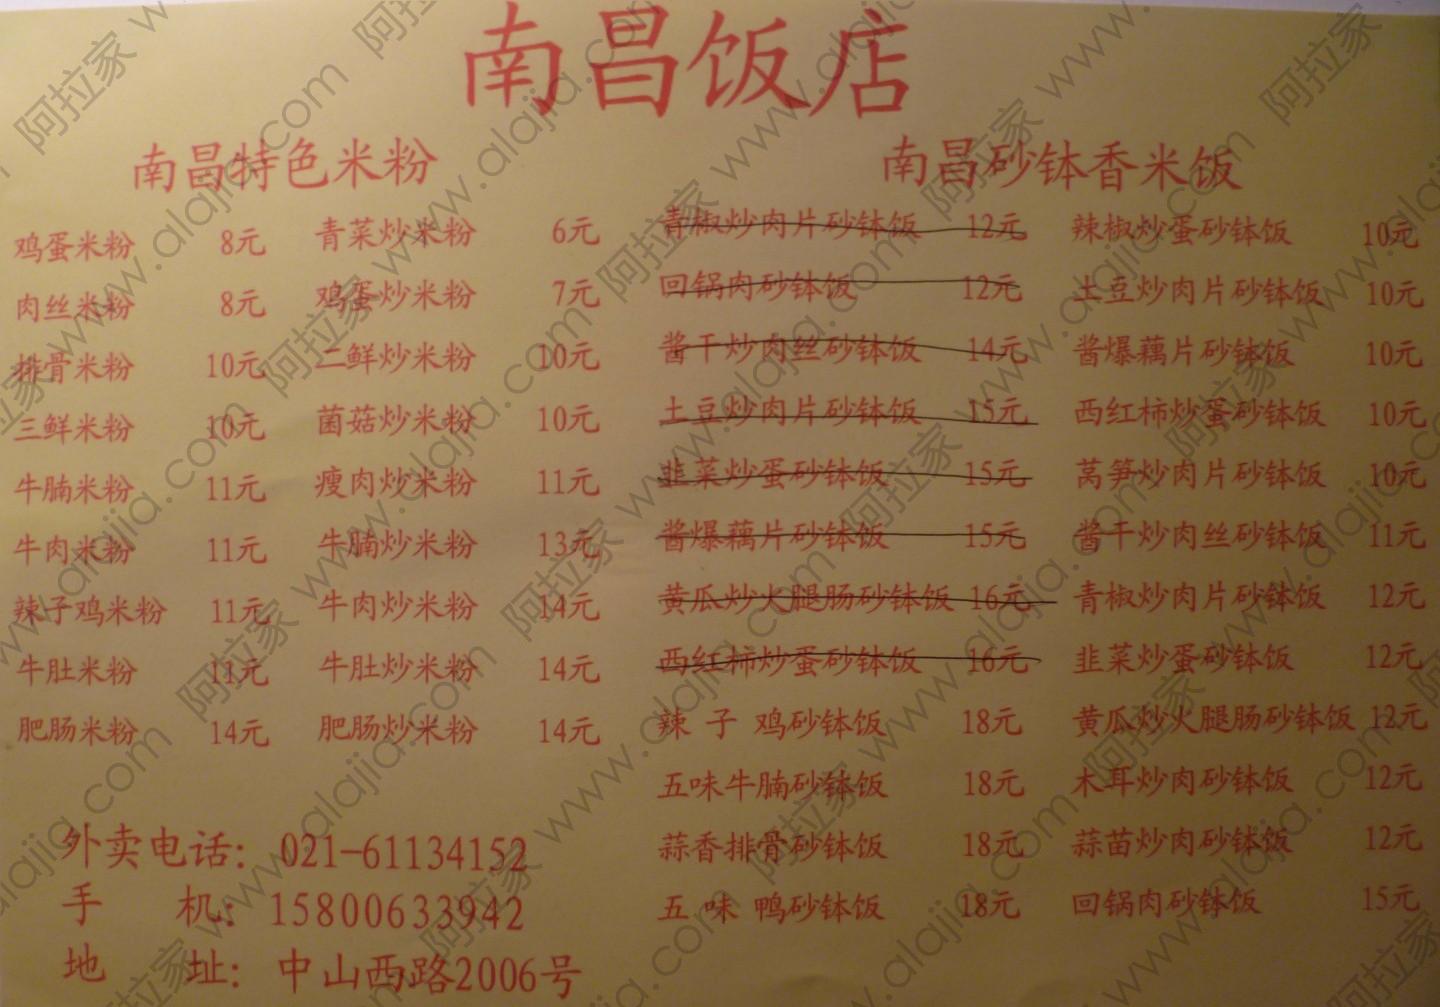 南昌饭店
南昌特色米粉
鸡蛋米粉 8元 青菜炒米粉 6元
肉丝米粉 8元 鸡蛋炒米粉 7元
排骨米粉 10元 二鲜炒米粉 10元
三鲜米粉 10元 菌菇炒米粉 10元
牛腩米粉 11元 瘦肉炒米粉 11元
牛肉米粉 11元 牛腩炒米粉 13元
辣子鸡米粉 11元 牛肉炒米粉 14元
牛肚米粉 11元 牛肚炒米粉 14元
肥肠米粉 14元 肥肠炒米粉 14元
外卖电话: 021-61134152
手机: 15800633942
地址: 中山西路2006号
南昌砂钵香米饭
青椒炒肉片砂钵饭 12元 辣椒炒蛋砂钵饭 10元
回锅肉砂钵饭 12元 土豆炒肉片砂钵饭 10元
酱干炒肉丝砂钵饭 14元 酱爆藕片砂钵饭 10元
土豆炒肉片砂钵饭 15元 西红柿炒蛋砂钵饭 10元
韭菜炒蛋砂钵饭 15元 莴笋炒肉片砂钵饭 10元
酱爆藕片砂钵饭 15元 酱干炒肉丝砂钵饭 11元
黄瓜炒火腿肠砂钵饭 16元 青椒炒肉片砂钵饭 12元
西红柿炒蛋砂钵饭 16元 韭菜炒蛋砂钵饭 12元
辣子鸡砂钵饭 18元 黄瓜炒火腿肠砂钵饭 12元
五味牛腩砂钵饭 18元 木耳炒肉砂钵饭 12元
蒜香排骨砂钵饭 18元 蒜苗炒肉砂钵饭 12元
五味鸭砂钵饭 18元 回锅肉砂钵饭 15元
阿拉家 www.alajia.com